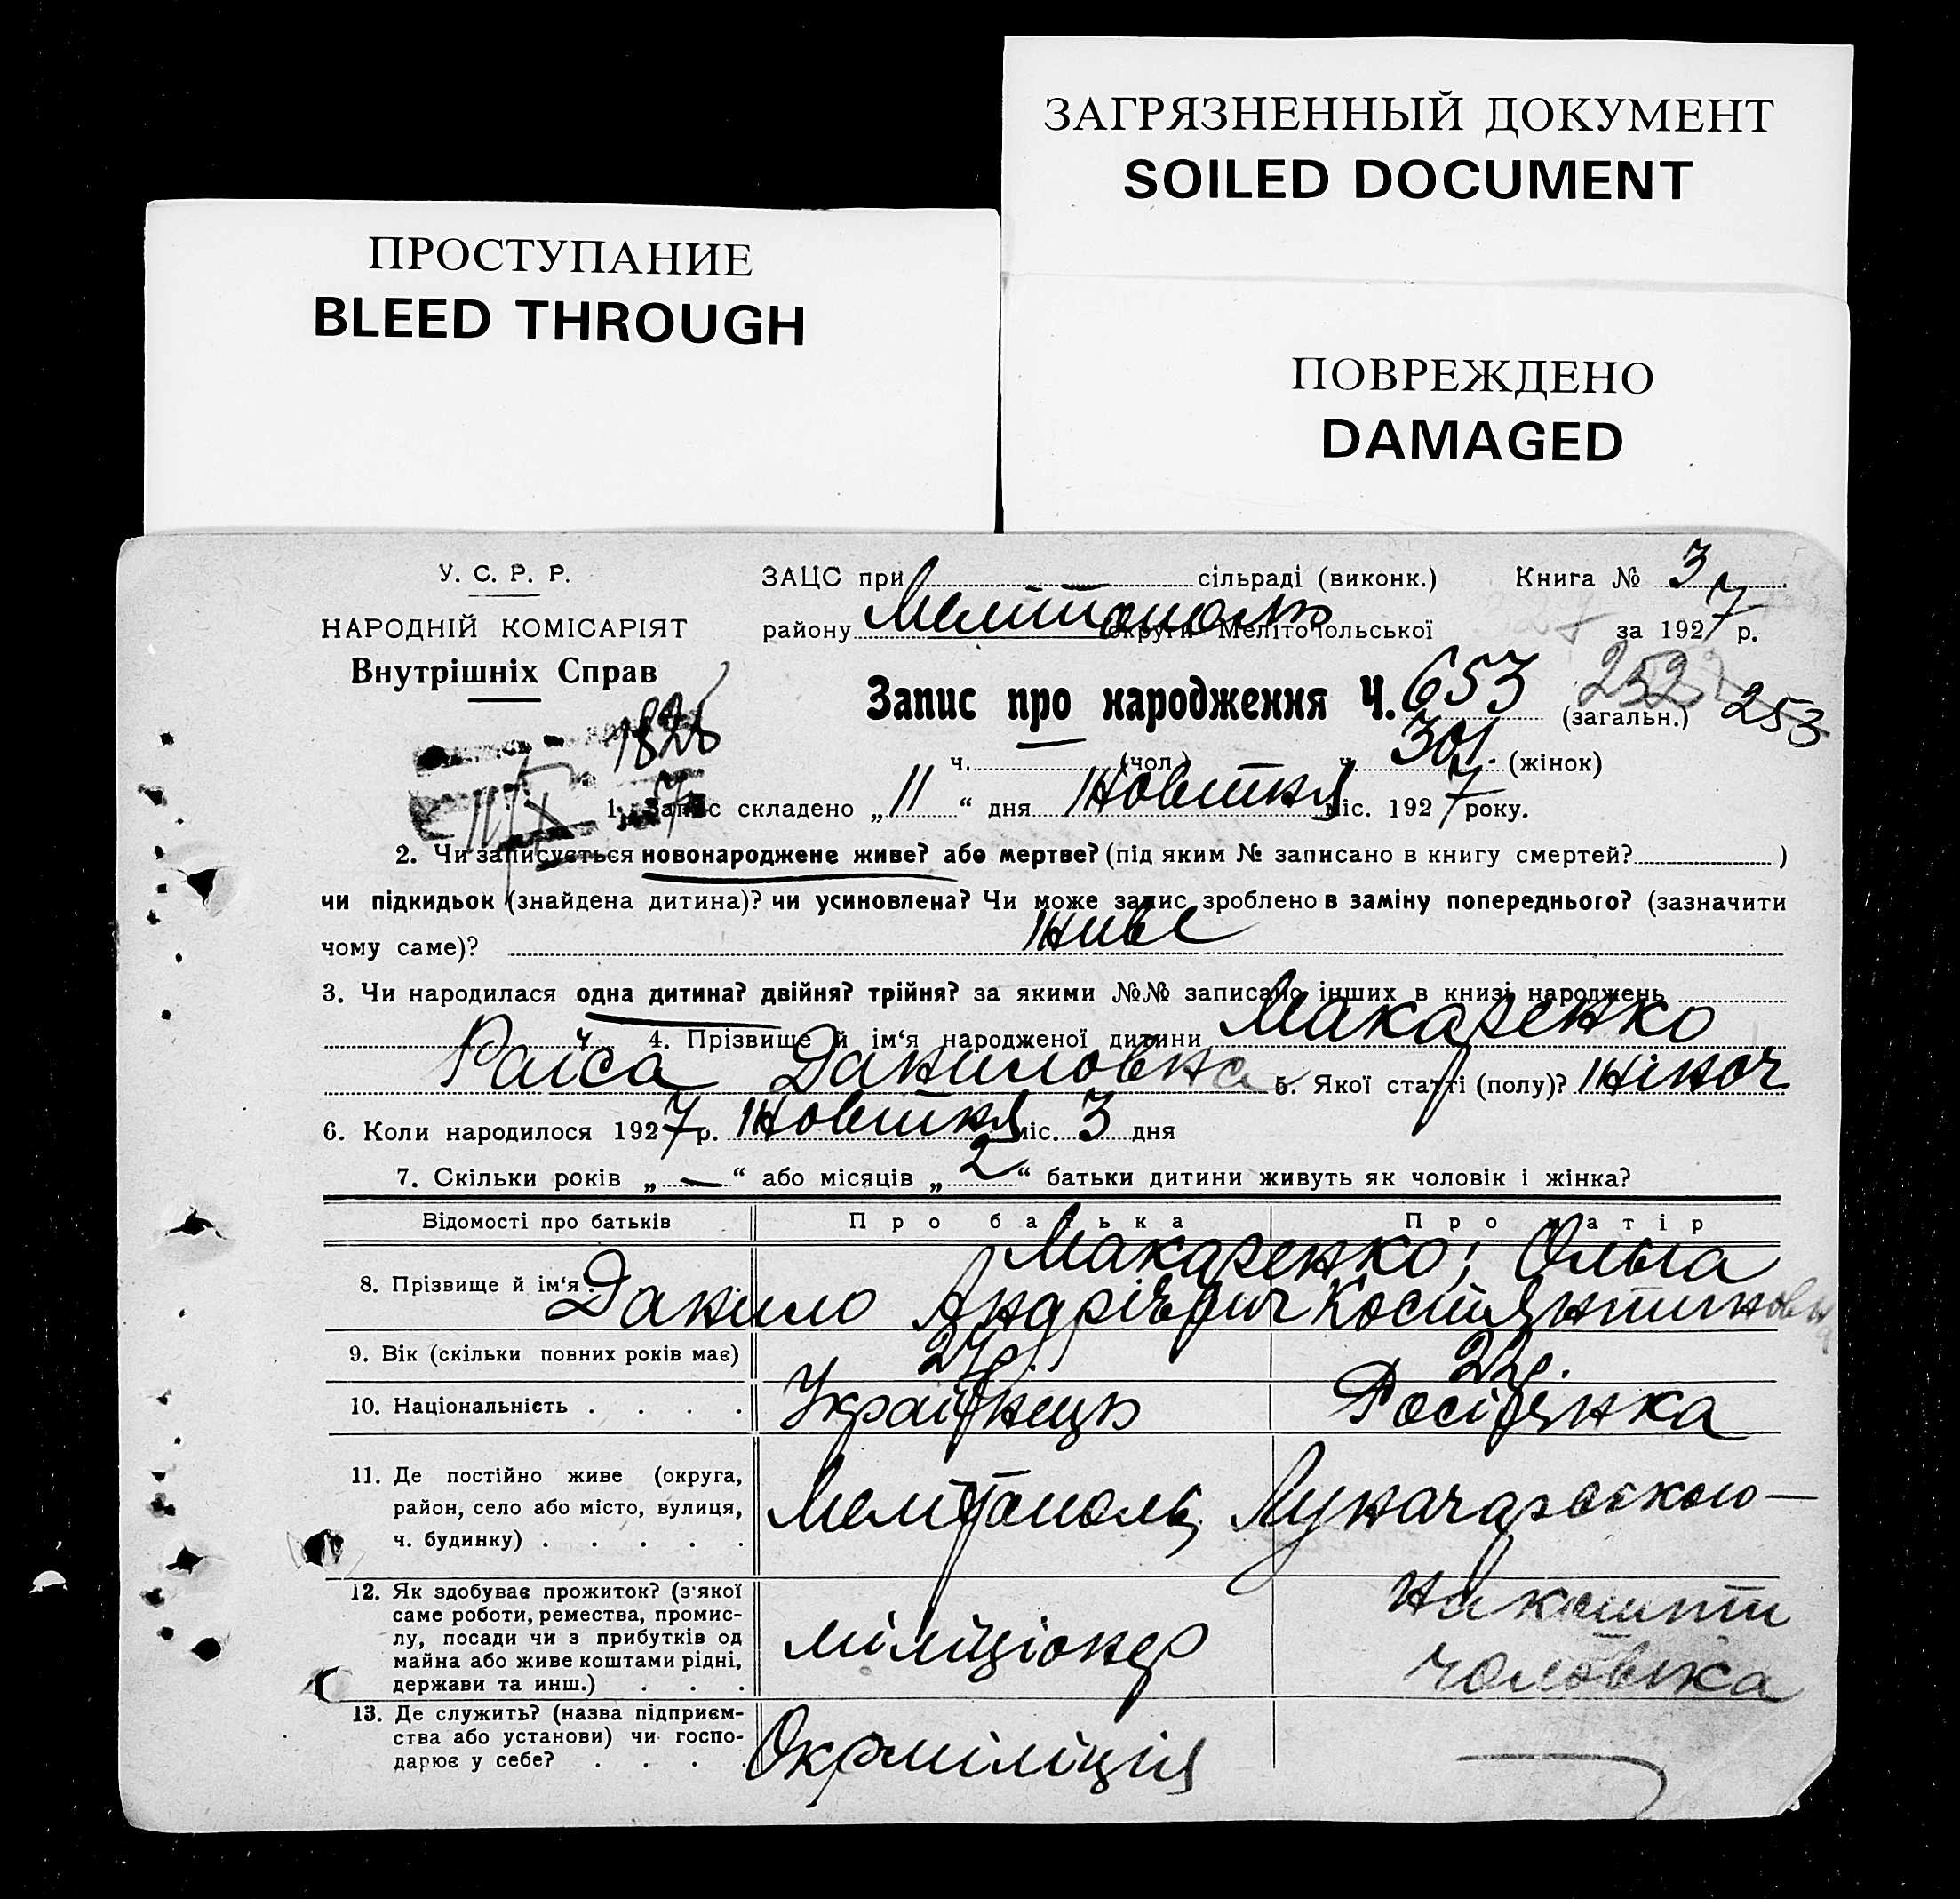 ЗАГРЯЗНЕННЫЙ ДОКУМЕНТ
SOILED DOCUMENT
ПРОСТУПАНИЕ
BLEED THROUGH
ПОВРЕЖДЕНО
DAMAGED
У. С. Р. Р.
НАРОДНІЙ КОМІСАРІЯТ
Внутрішніх Справ
ЗАЦС при сільраді (виконк.) Книга № 3
району Мелітополь округи Мелітопольської за 1927 р.
Запис про народження Ч. 653 (загальн.) 252 253
1828
ч. (чол.) ч. 301. (жінок)
1. Запис складено „11“ дня Жовтня міс. 1927 року.
2. Чи записується новонароджене живе? або мертве? (під яким № записано в книгу смертей? )
чи підкидьок (знайдена дитина)? чи усиновлена? Чи може запис зроблено в заміну попереднього? (зазначити
чому саме)? Живе
3. Чи народилася одна дитина? двійня? трійня? за якими №№ записано інших в книзі народжень
4. Прізвище й ім‘я народженої дитини Макаренко
Раїса Даниловна 5. Якої статті (полу)? Жіноч
6. Коли народилося 1927 р. Жовтня міс. 3 дня
7. Скільки років „—“ або місяців „2“ батьки дитини живуть як чоловік і жінка?
Відомості про батьків Про батька Про матір
8. Прізвище й ім‘я. Макаренко; Ольга
Данило Андрієвич Костянтиновна
9. Вік (скільки повних років має) 24р. 22р.
10. Національність . . . . Українець Росіянка
11. Де постійно живе (округа,
район, село або місто, вулиця,
ч. будинку) . . . . . Мелітополь, Луначарського —
12. Як здобуває прожиток? (з‘якої
саме роботи, ремества, промис-
лу, посади чи з прибутків од
майна або живе коштами рідні,
держави та инш.) . . . міліціонер На кошти
чоловіка
13. Де служить? (назва підприєм-
ства або установи) чи госпо-
дарює у себе? . . . . Окрміліція —